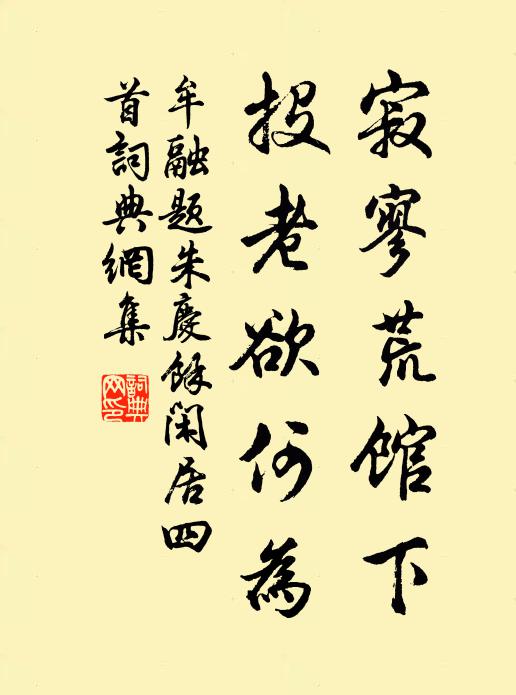 寂寥荒館下
投老欲何為
牟融題朱慶餘閑居四
首詞典網集
詞典
网印